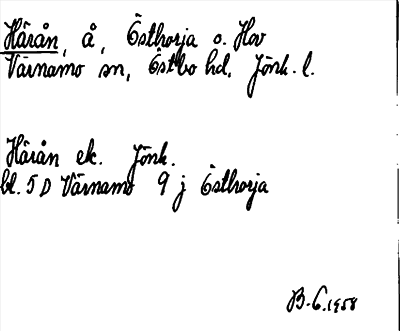 Härån, å, Östhorja o. Hov
Värnamo sn, Östbo hd, Jönk. l.
Härån ek. Jönk.
bl. 5 D Värnamo 9 j Östhorja
B. G. 1958